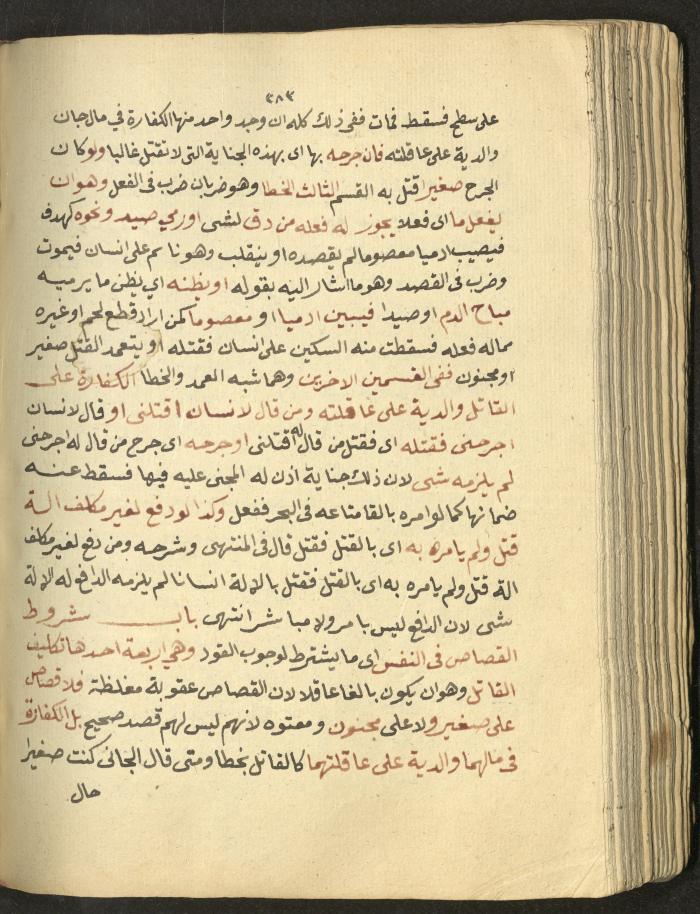 ٣٨٣
على سطح فسقط فمات ففى ذلك كله ان وجد واحد منها الكفارة في مال جان
والدية على عاقلته فان جرحه بها اى بهذه الجناية التى لا تقتل غالبا ولو كان
الجرح صغيرا قتل به القسم الثالث الخطا وهو ضربان ضرب فى الفعل وهو ان
يفعل ما اى فعلا يجوز له فعله من دق لشى او رمي صيد ونحوه كهدف
فيصيب ادميا معصوما لم يقصده او ينقلب وهو نايم على انسان فيموت
وضرب فى القصد وهو ما اشار اليه بقوله او يظنه اي يظن ما يرميه
مباح الدم او صيدا فيبين ادميا او معصوما كمن اراد قطع لحم او غيره
مما له فعله فسقطت منه السكين على انسان فقتله او يتعمد القتل صغير
او مجنون ففى القسمين الاخرين وهما شبه العمد والخطا الكفارة على
القاتل والدية على عاقلته ومن قال لانسان اقتلنى او قال لانسان
اجرحنى فقتله اى فقتل من قال له اقتلنى او جرحه اى جرح من قال له اجرحنى
لم يلزمه شى لان ذلك جناية اذن له المجنى عليه فيها فسقط عنه
ضمانها كما لو امره بالقا متاعه فى البحر ففعل وكذا لو دفع لغير مكلف الة
قتل ولم يامره به اى بالقتل فقتل قال فى المنتهى وشرحه ومن دفع لغير مكلف
الة قتل ولم يامره به اى بالقتل فقتل بالالة انسانا لم يلزمه الدافع له الالة
شى لان الدافع ليس بامر ولا مباشر انتهى باب شروط
القصاص فى النفس اى ما يشترط لوجوب القود وهي اربعة احدها تكليف
القاتل وهو ان يكون بالغا عاقلا لان القصاص عقوبة مغلظة فلا قصاص
على صغير ولا على مجنون ومعتوه لانهم ليس لهم قصد صحيح بل الكفارة
فى مالهما والدية على عاقلتهما كالقاتل بخطا ومتى قال الجانى كنت صغيرا
حال